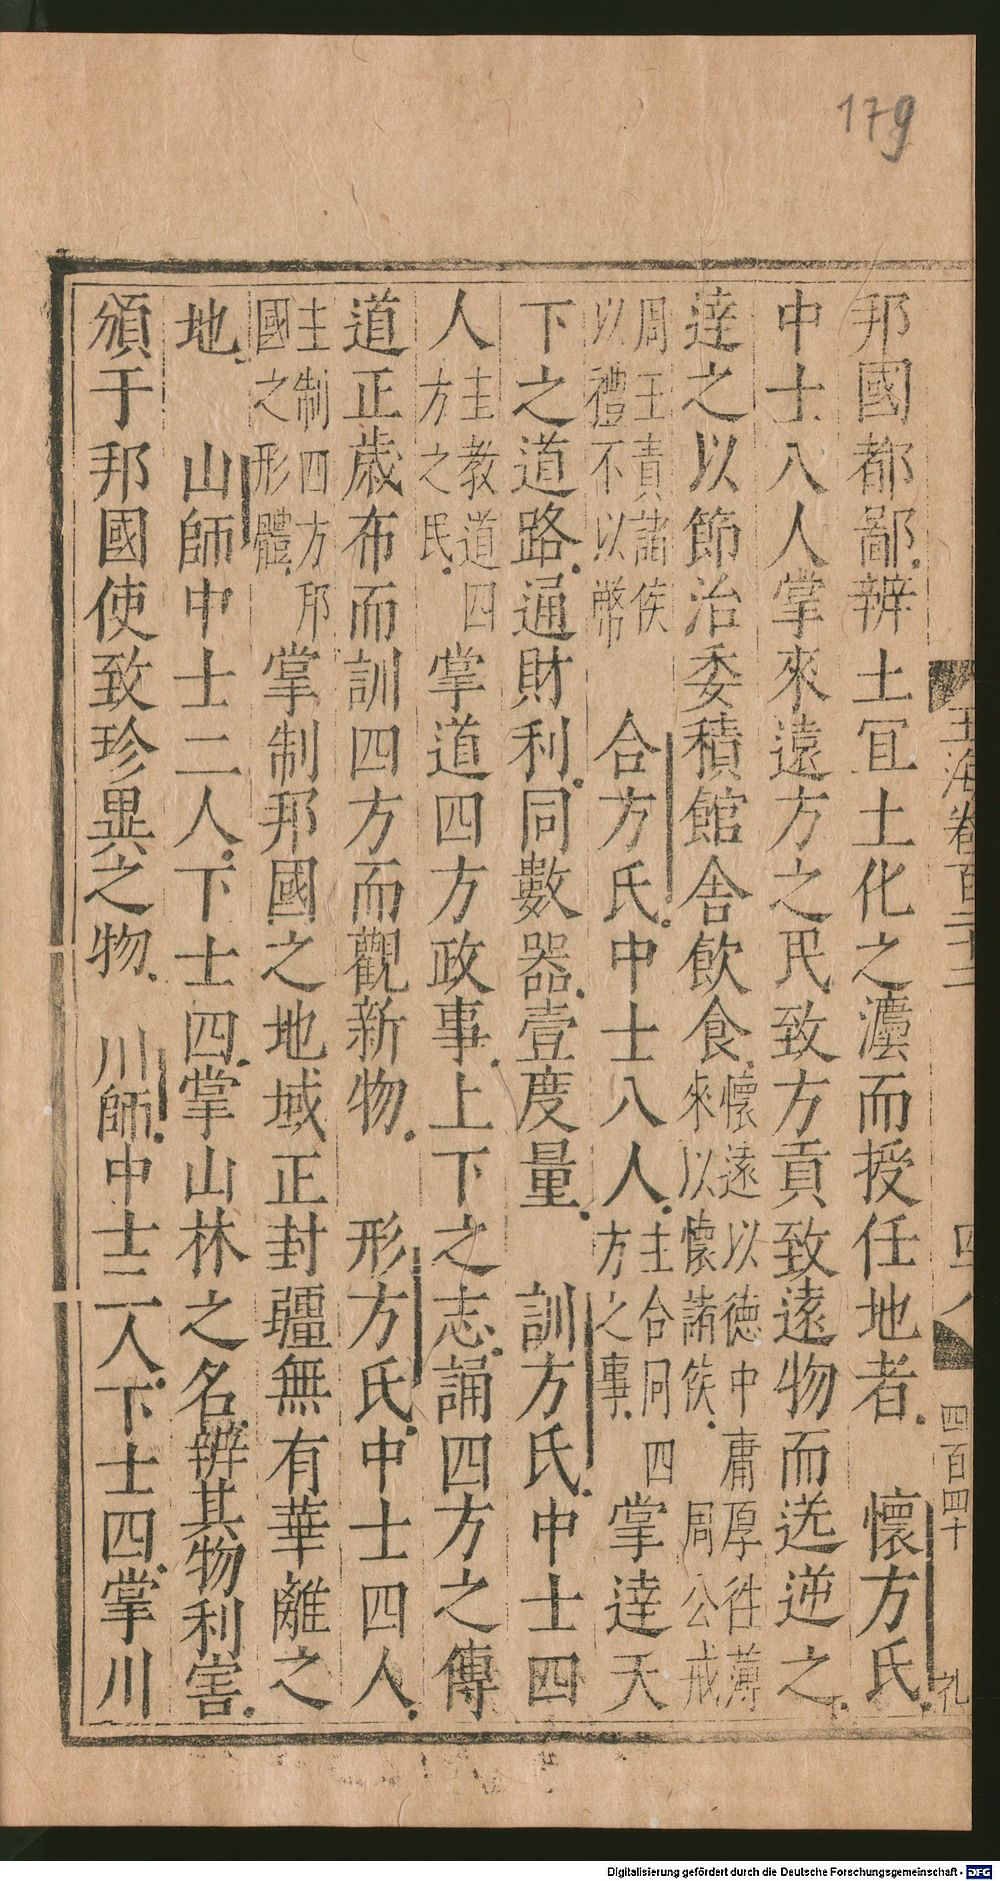 179
邦國都鄙辨土冝土化之灋而授任地者 懷方氏
中士八人掌來遠方之民致方貢致遠物而送逆之
達之以節治委積館舍飲食懷遠以德中庸厚徃薄來以懷諸侯 周公戒
周王責諸侯以禮不以幣 合方氏中士八人主合同四方之事掌達天
下之道路通財利同數器壹度量 訓方氏中士四
人主教道四方之民掌道四方政事上下之志誦四方之傳
道正歲布而訓四方而觀新物 形方氏中士四人
主制四方邦國之形體掌制邦國之地域正封疆無有華離之
地 山師中士二人下士四掌山林之名辨其物利害
頒于邦國使致珍異之物 川師中士二人下士四掌川
玉海卷百二十二
四百四十
Digitalisierung gefördert durch die Deutsche Forschungsgemeinschaft - DFG